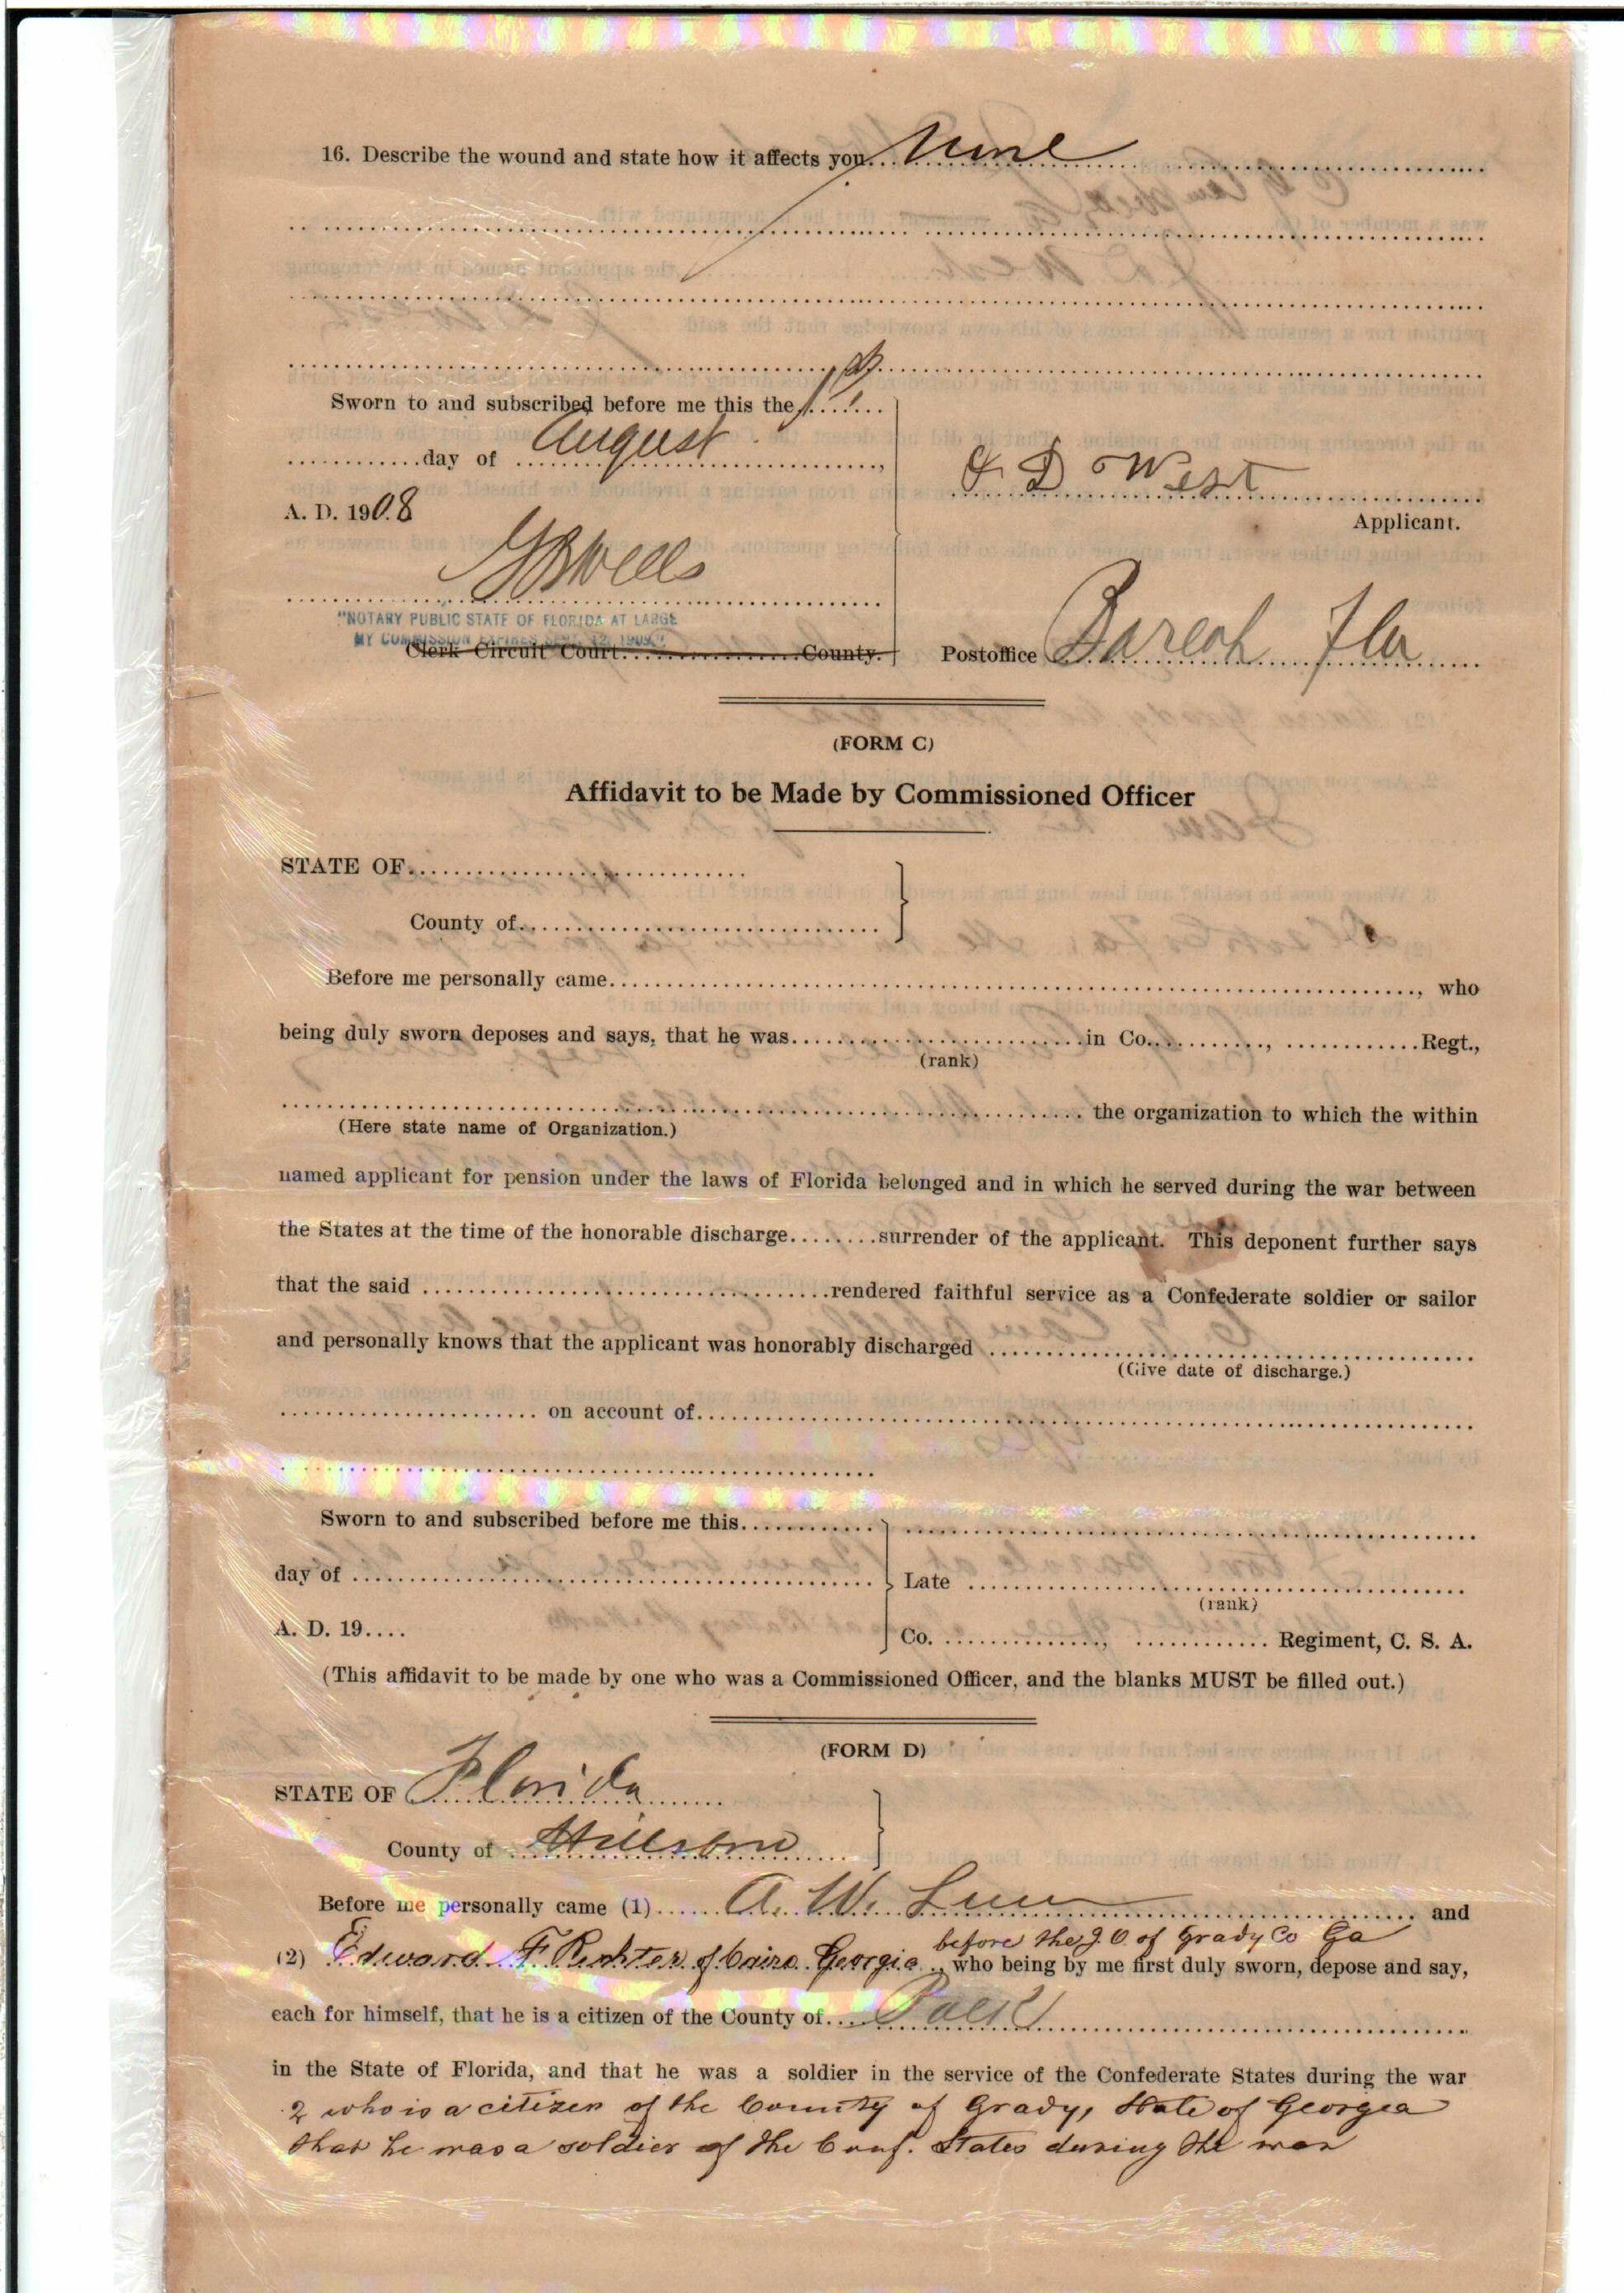 16. Describe the wound and state how it affects you. None
Sworn to and subscribed before me this the
day of August,
A. D. 190.8
D West
Applicant.
G B Wells
"NOTARY PUBLIC STATE OF FLORIDA AT LARGE
MY COMMISSION EXPIRES SEPT. 12, 1909."
Clerk Circuit Court County.
Postoffice Fla
(FORM C)
Affidavit to be Made by Commissioned Officer
STATE OF
County of
Before me personally came, who
being duly sworn deposes and says, that he was in Co., Regt.,
(rank)
the organization to which the within
(Here state name of Organization.)
named applicant for pension under the laws of Florida belonged and in which he served during the war between
the States at the time of the honorable discharge surrender of the applicant. This deponent further says
that the said rendered faithful service as a Confederate soldier or sailor
and personally knows that the applicant was honorably discharged
(Give date of discharge.)
on account of
Sworn to and subscribed before me this
day of
Late
(rank)
A. D. 19....
Co. , Regiment, C. S. A.
(This affidavit to be made by one who was a Commissioned Officer, and the blanks MUST be filled out.)
(FORM D)
STATE OF Florida
County of Hillsboro
Before me personally came (1) A. W. and
before the J. O. of Grady Co Ga
(2) Edward F. Richter of Cairo Georgia, who being by me first duly sworn, depose and say,
each for himself, that he is a citizen of the County of Polk
in the State of Florida, and that he was a soldier in the service of the Confederate States during the war
2 who is a citizen of the County of Grady, State of Georgia
that he was a soldier of the Conf. States during the war